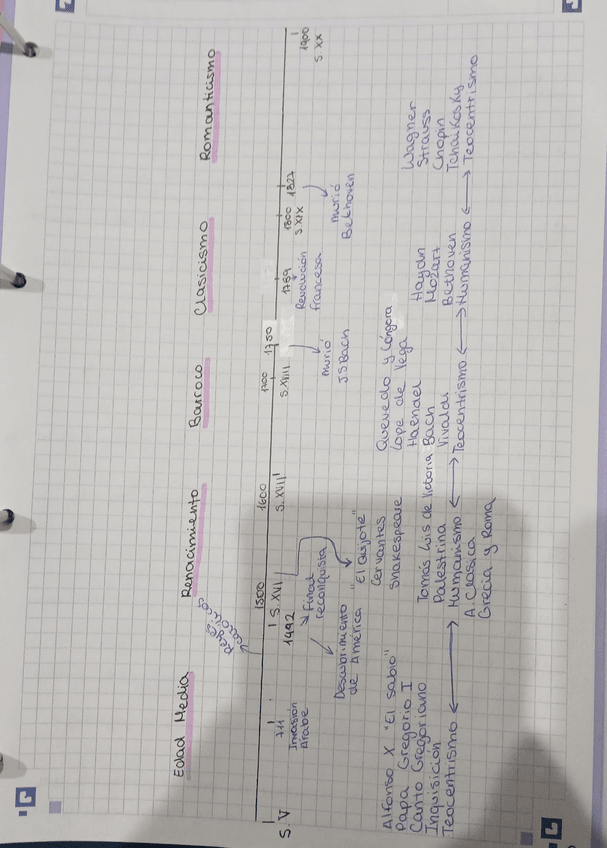 Edad Media
Renacimiento
Barroco
Clasicismo
Romanticismo
Reyes
católicos
1500
1600
1700
1750
S. V
711
Invasión
Árabe
1492
S. XVI
Final
reconquista
Descubrimiento
de América
"El Quijote"
S. XVII
S. XVIII
murió
JS Bach
1789
Revolución
francesa
1800
S. XIX
1827
murió
Bethoven
1900
S. XX
Alfonso X "El sabio"
Papa Gregorio I
Canto Gregoriano
Inquisición
Teocentrismo
Cervantes
Shakespeare
Tomás Luis de Victoria
Palestrina
Humanismo
A. Clasica
Grecia y Roma
Quevedo y Góngora
Lope de Vega
Haendel
Bach
Vivaldi
Teocentrismo
Haydn
Mozart
Bethoven
Humanismo
Wagner
Strauss
Chopin
Tchaikosky
Teocentrismo